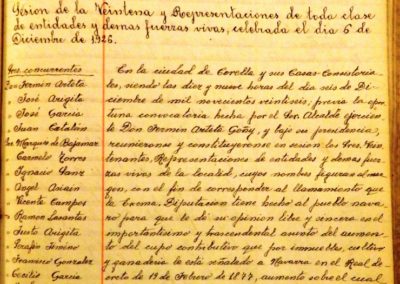 Sesion de la Veintena y Representaciones de toda clase
de entidades y demas fuerzas vivas, celebrada el dia 6 de
Diciembre de 1926.
Sres. concurrentes
Don Fermin Arteta
" José Arigita
" José Garcia
" Juan Catalán
Sor Marques de Bajamar
" Carmelo Torres
" Ignacio Sanz
" Angel
" Vicente Campos
" Ramon
" Justo Arigita
" Serafin Jimeno
" Francisco Gonzalez
" Cecilio Garcia
En la ciudad de Corella y sus Casas-Consistoria-
les, siendo las diez y nueve horas del dia seis de Di-
ciembre de mil novecientos veintiseis; previa la opor-
tuna convocatoria hecha por el Sor Alcalde ejercien-
te Don Fermin Arteta Goñy, y bajo su presidencia,
reunieronse y constituyeronse en sesion los Sres. Vein-
tenantes, Representaciones de entidades y demas fuer-
zas vivas de la localidad, cuyos nombres figuran al mar-
gen, con el fin de corresponder al llamamiento que
la Excma. Diputacion tiene hecho al pueblo nava-
rro para que le dé su opinion libre y sincera en el
importantisimo y trascendental asunto del aumento
del cupo contributivo que por inmuebles, cultivo
y ganaderia le está señalado á Navarra en el Real de-
creto de 19 de Febrero de 1877, aumento sobre el cual